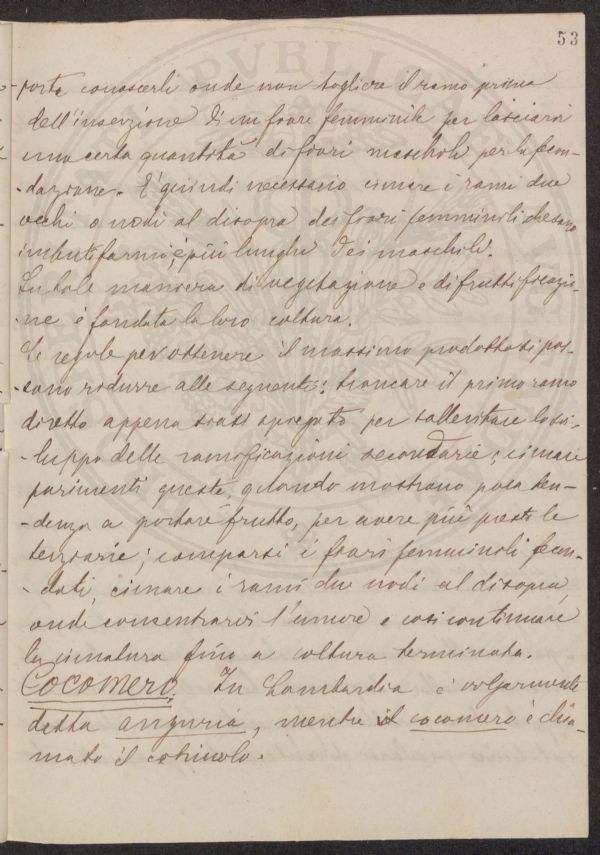 53
-porta conoscerli onde non togliere il ramo prima
dell'inserzione d'un fiore femminile per lasciarvi
una certa quantità di fiori maschili per la fecon-
-dazione. E' quindi necessario cimare i rami due
occhi o nodi al disopra dei fiori femminili che sono
imbutifarmi, e più lunghi dei maschili.
In tale maniera di vegetazione e di fruttificazio-
-ne è fondata la loro coltura.
Le regole per ottenere il massimo prodotto si pos-
sono ridurre alle seguenti: troncare il primo ramo
diretto appena siasi spiegato per sollecitare lo svi-
-luppo delle ramificazioni secondarie; cimare
parimenti queste, quando mostrano poca ten-
-denza a portare frutto, per avere più presto le
terziarie; comparsi i fiori femminili fecon-
-dati, cimare i rami due nodi al disopra,
onde concentrarvi l'umore e così continuare
la cimatura fino a coltura terminata.
Cocomero. In Lombardia è volgarmente
detta anguria, mentre il cocomero è chia-
mato il cetriuolo.